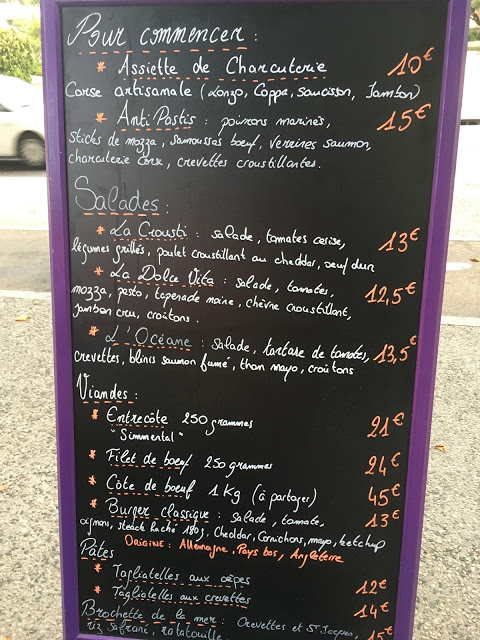 Pour commencer :
* Assiette de Charcuterie 10€
Corse artisanale (Lonzo, Coppa, saucisson, Jambon)
* AntiPastis : poivrons marinés, 15€
sticks de mozza, samoussas boeuf, verrines saumon,
charcuterie corse, crevettes croustillantes.
Salades :
* La Crousti : salade, tomates cerise, 13€
légumes grillés, poulet croustillant au cheddar, oeuf dur
* La Dolce Vita : salade, tomates, 12,5€
mozza, pesto, tapenade noire, chèvre croustillant,
jambon cru, croûtons.
* L'Océane : salade, tartare de tomates, 13,5€
crevettes, blinis saumon fumé, thon mayo, croûtons
Viandes :
* Entrecôte 250 grammes 21€
"Simmental"
* Filet de boeuf 250 grammes 24€
* Côte de boeuf 1 Kg (à partager) 45€
* Burger classique : salade, tomate, 13€
oignons, steack haché 180g, Cheddar, Cornichons, mayo, ketchup
Origine : Allemagne, Pays bas, Angleterre
Pâtes
* Tagliatelles aux cèpes 12€
* Tagliatelles aux crevettes 14€
Brochette de la mer : Crevettes et St Jacques,
riz safrané, ratatouille 15€